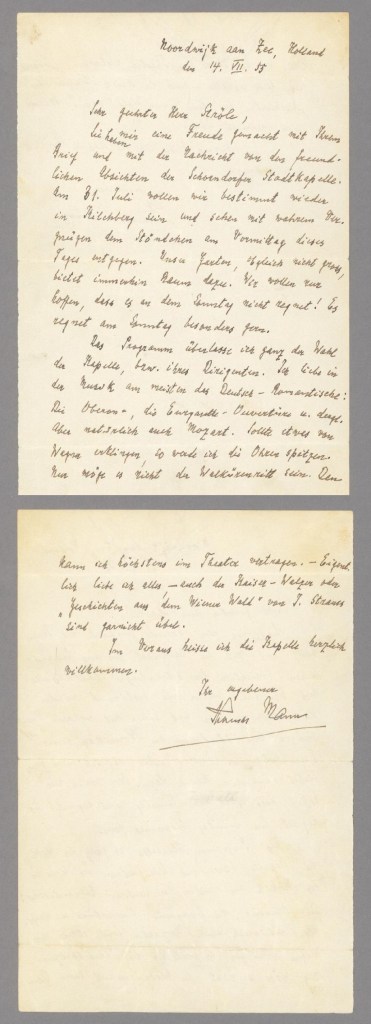 Noordwijk aan Zee, Holland
den 14. VII. 55
Sehr geehrter Herr Ströle,
Sie haben mir eine Freude gemacht mit Ihrem
Brief und mit der Nachricht von den freund-
lichen Absichten der Schorndorfer Stadtkapelle.
Am 31. Juli wollen wir bestimmt wieder
in Kilchberg sein und sehen mit wahrem Ver-
gnügen dem Ständchen am Vormittag dieses
Tages entgegen. Unser Garten, obgleich nicht gross,
bietet immerhin Raum dazu. Wir wollen nur
hoffen, dass es an dem Sonntag nicht regnet! Es
regnet am Sonntag besonders gern.
Das Programm überlasse ich ganz der Wahl
der Kapelle, bzw. ihres Dirigenten. Ich liebe in
der Musik am meisten das Deutsch-Romantische:
Die Oberon-, die Euryanthe-Ouvertüre u. dergl.
Aber natürlich auch Mozart. Sollte etwas von
Wagner erklingen, so werde ich die Ohren spitzen.
Nur möge es nicht der Walkürenritt sein. Den
kann ich höchstens im Theater vertragen. – Eigent-
lich liebe ich alles, – auch der Kaiser-Walzer oder
„Geschichten aus dem Wiener Wald" von J. Strauss
sind garnicht übel.
Im Voraus heisse ich die Kapelle herzlich
willkommen.
Ihr ergebener
Thomas Mann